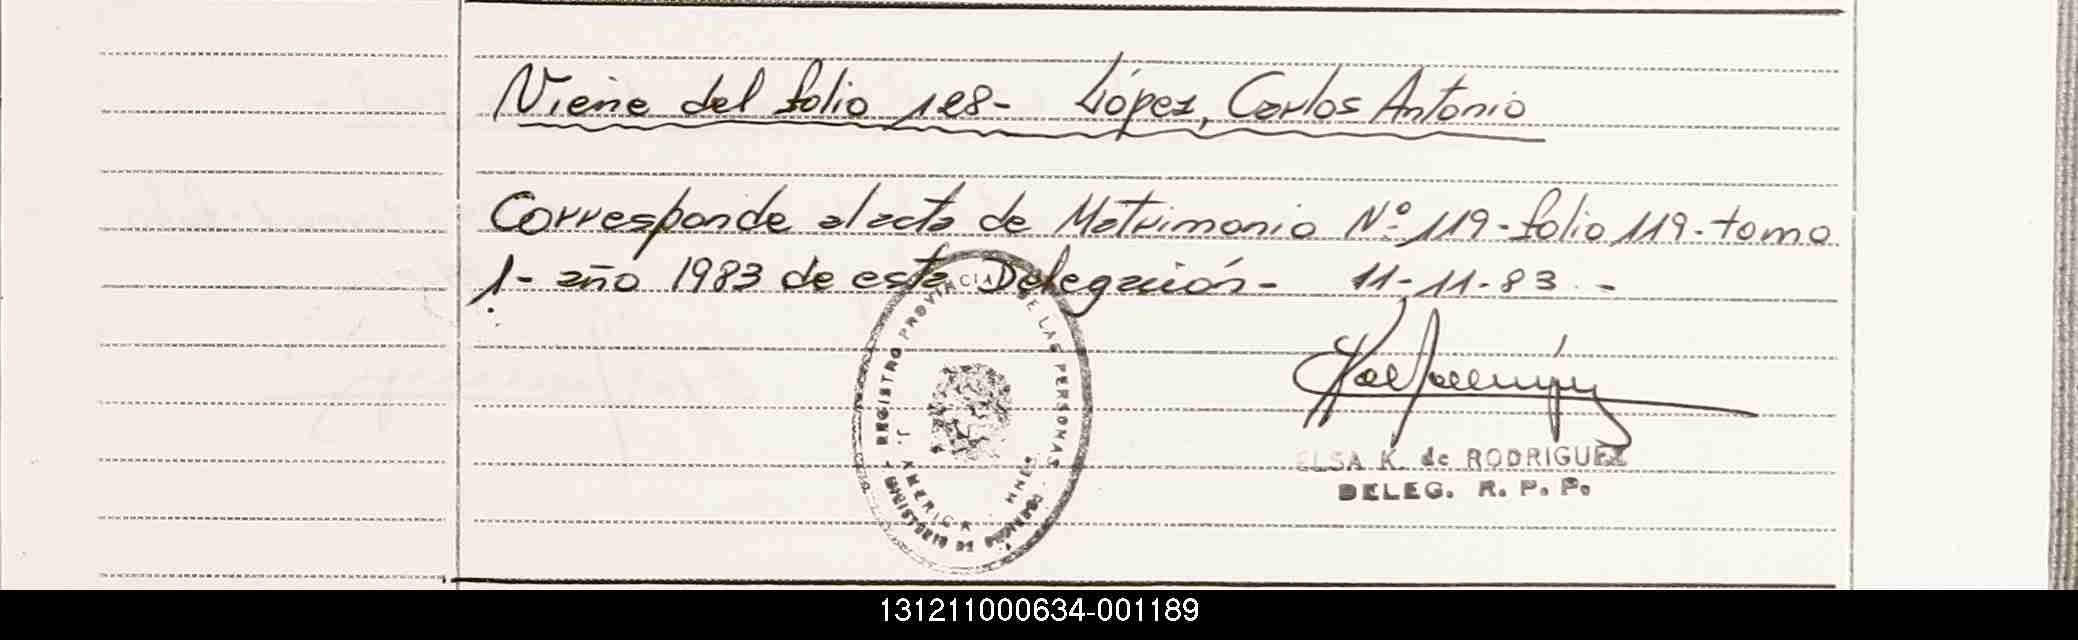 Viene del folio 128- López, Carlos Antonio
Corresponde al acta de Matrimonio Nº 119- folio 119- tomo
1- año 1983 de esta Delegación- 11-11-83.-
REGISTRO PROVINCIAL DE LAS PERSONAS
MINISTERIO DE GOBIERNO
AMERICA
ELSA K. de RODRIGUEZ
DELEG. R. P. P.
131211000634-001189